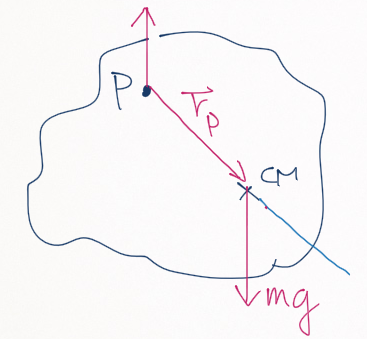 P
r⃗p
CM
mg